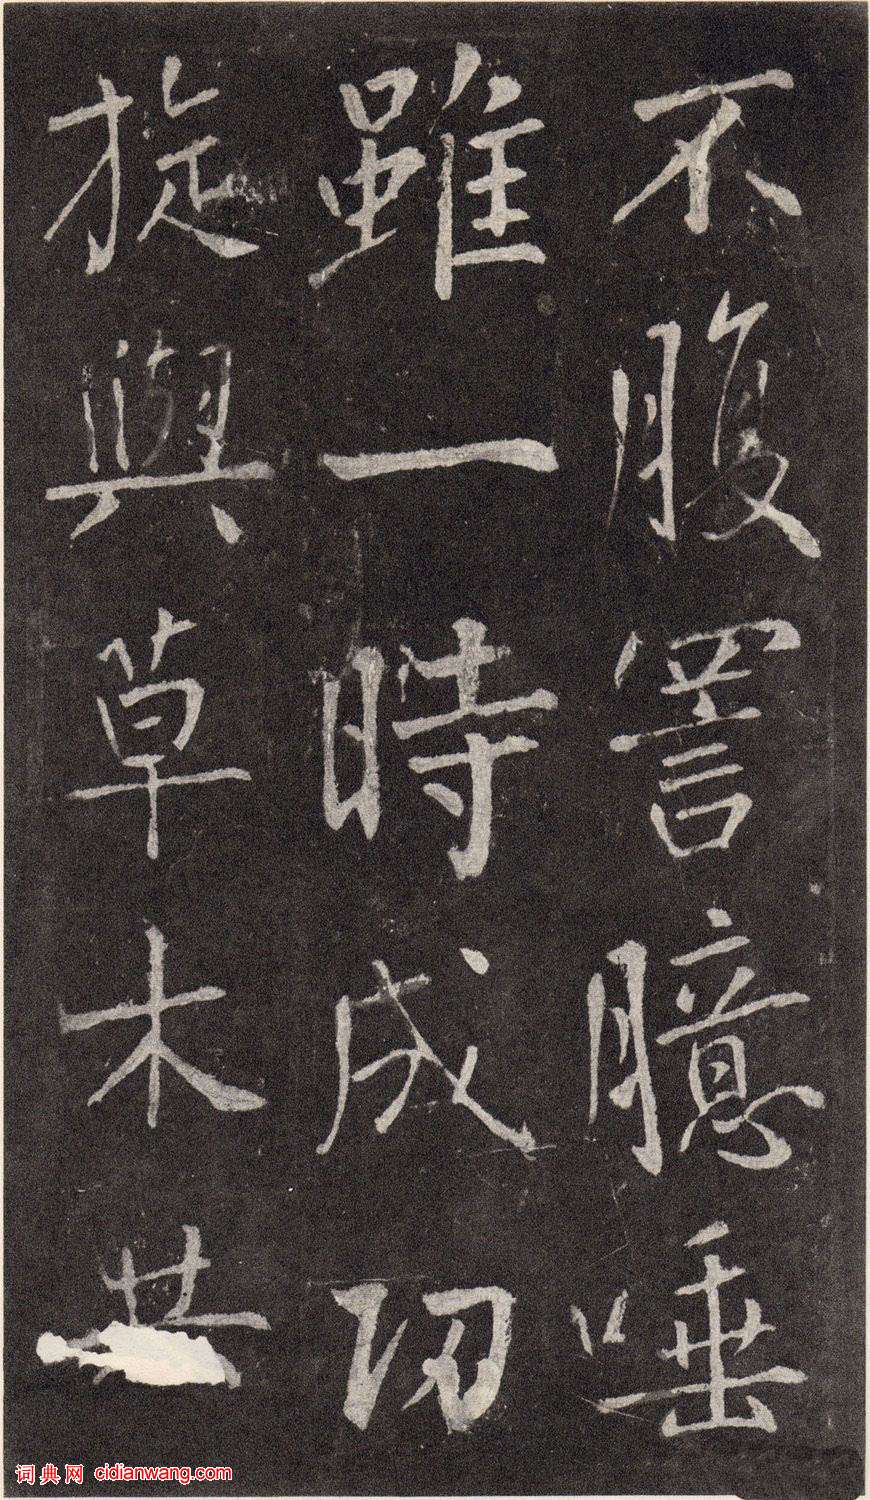 不腹詈臆唾
雖一時成功
旋與草木共
词典网 cidianwang.com